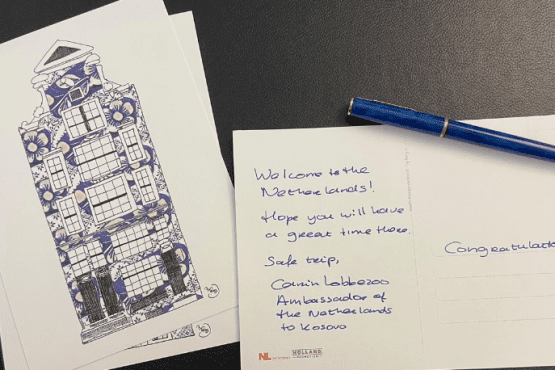 Welcome to the
Netherlands!
Hope you will have
a great time there.
Safe trip,
Carin Lobbezoo
Ambassador of
the Netherlands
to Kosovo
Congratulatio
NL
HOLLAND